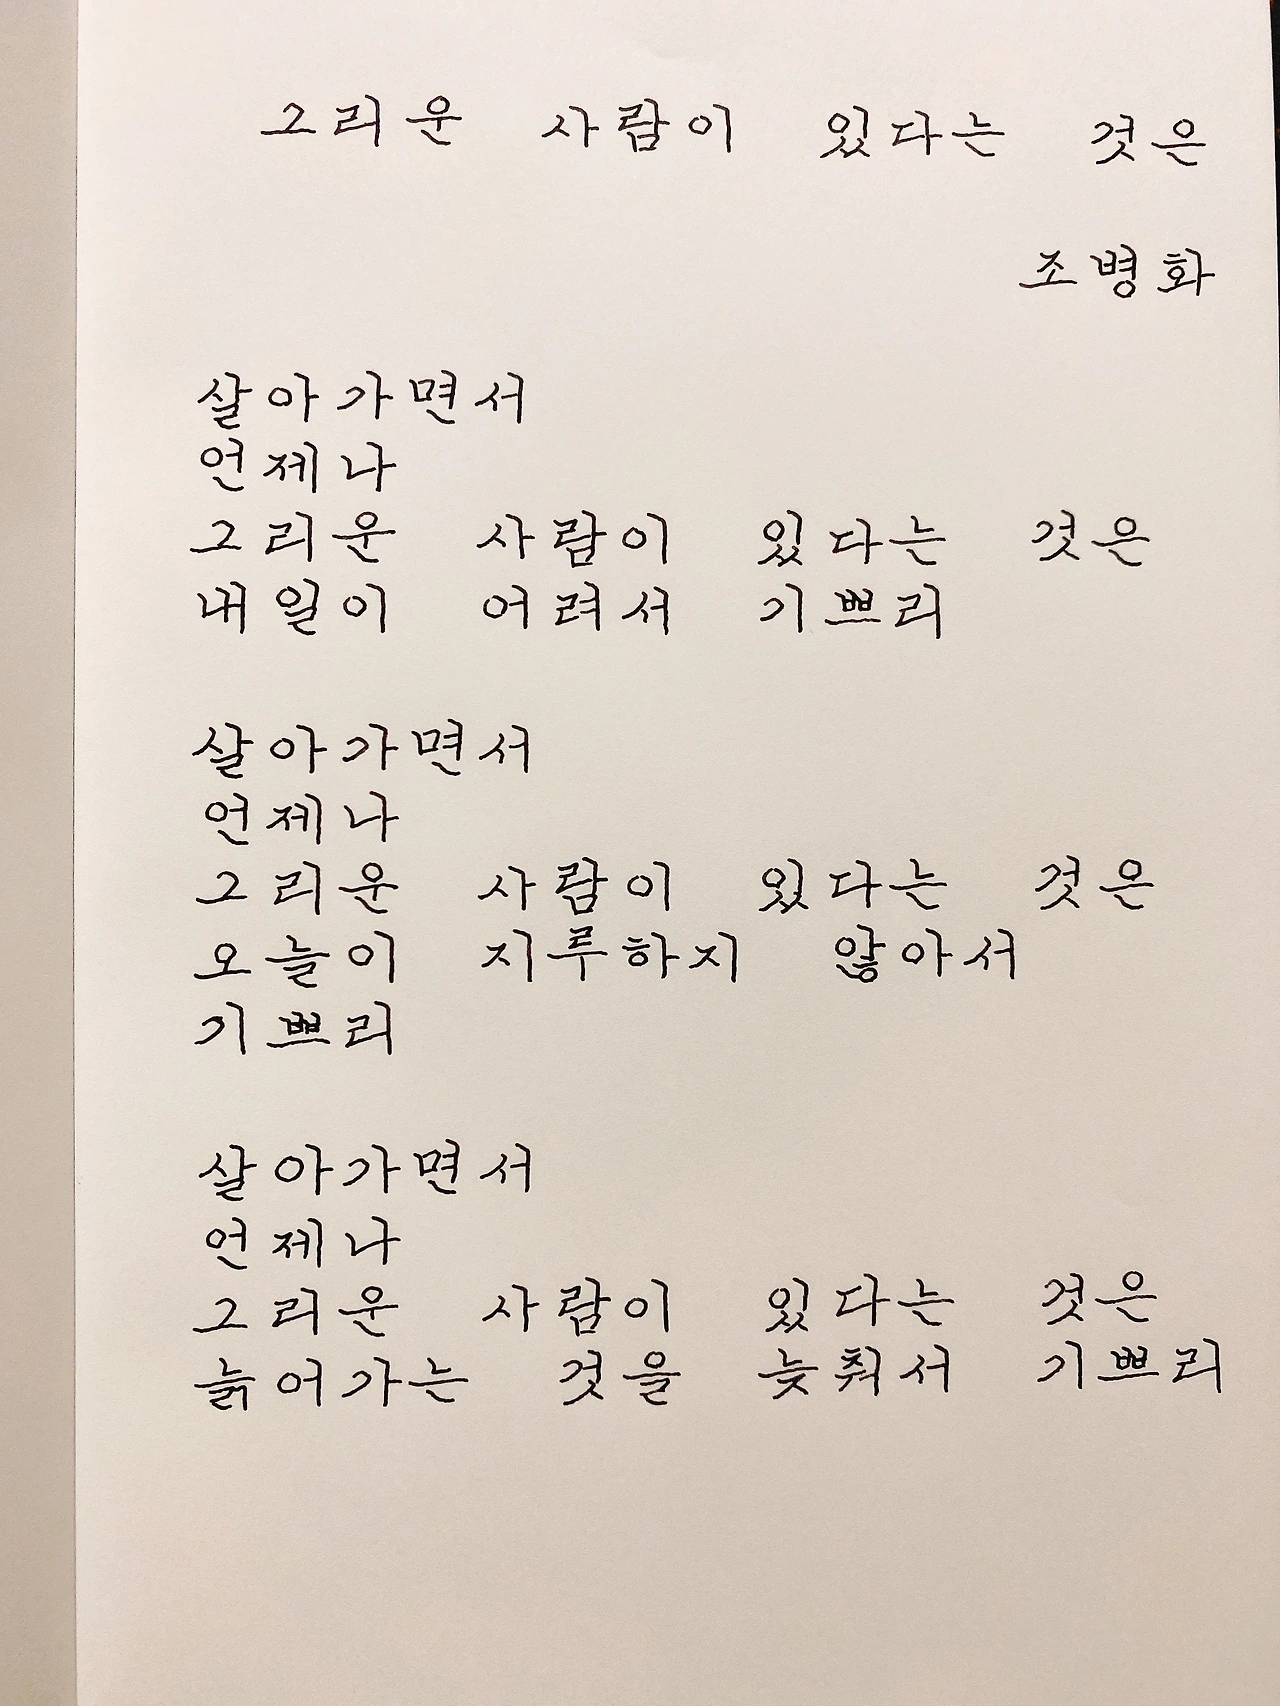 그리운 사람이 있다는 것은
조병화
살아가면서
언제나
그리운 사람이 있다는 것은
내일이 어려서 기쁘리
살아가면서
언제나
그리운 사람이 있다는 것은
오늘이 지루하지 않아서
기쁘리
살아가면서
언제나
그리운 사람이 있다는 것은
늙어가는 것을 늦춰서 기쁘리